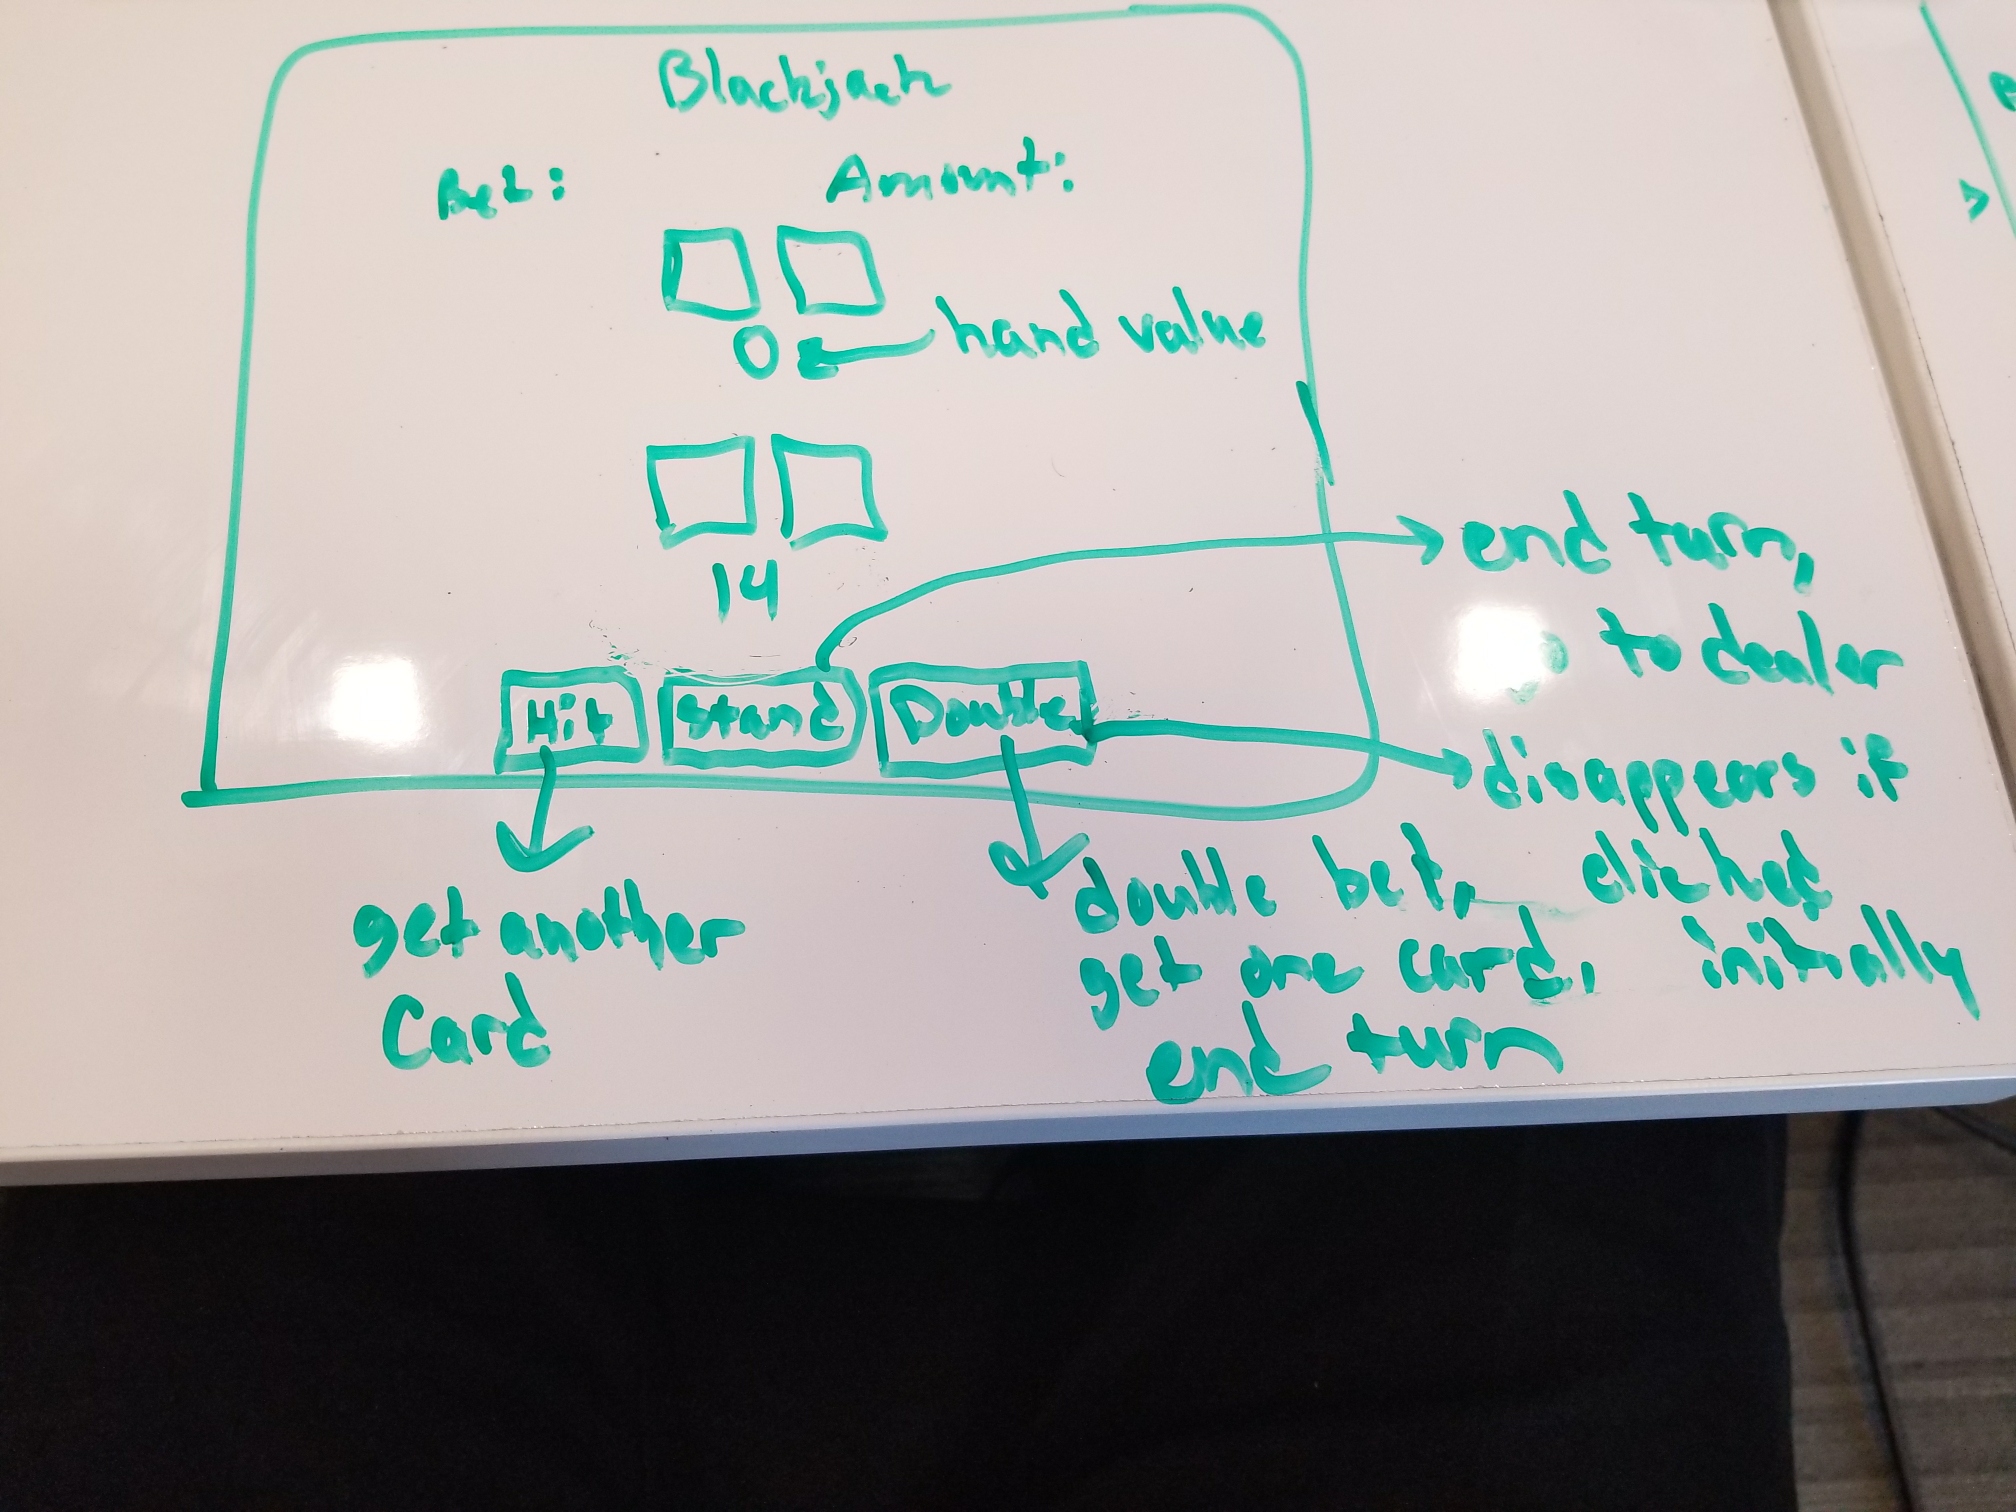 Blackjack
Bet:
Amount:
0
hand value
14
Hit
Stand
Double
end turn,
to dealer
disappears if
clicked
initially
get another
Card
double bet,
get one card,
end turn